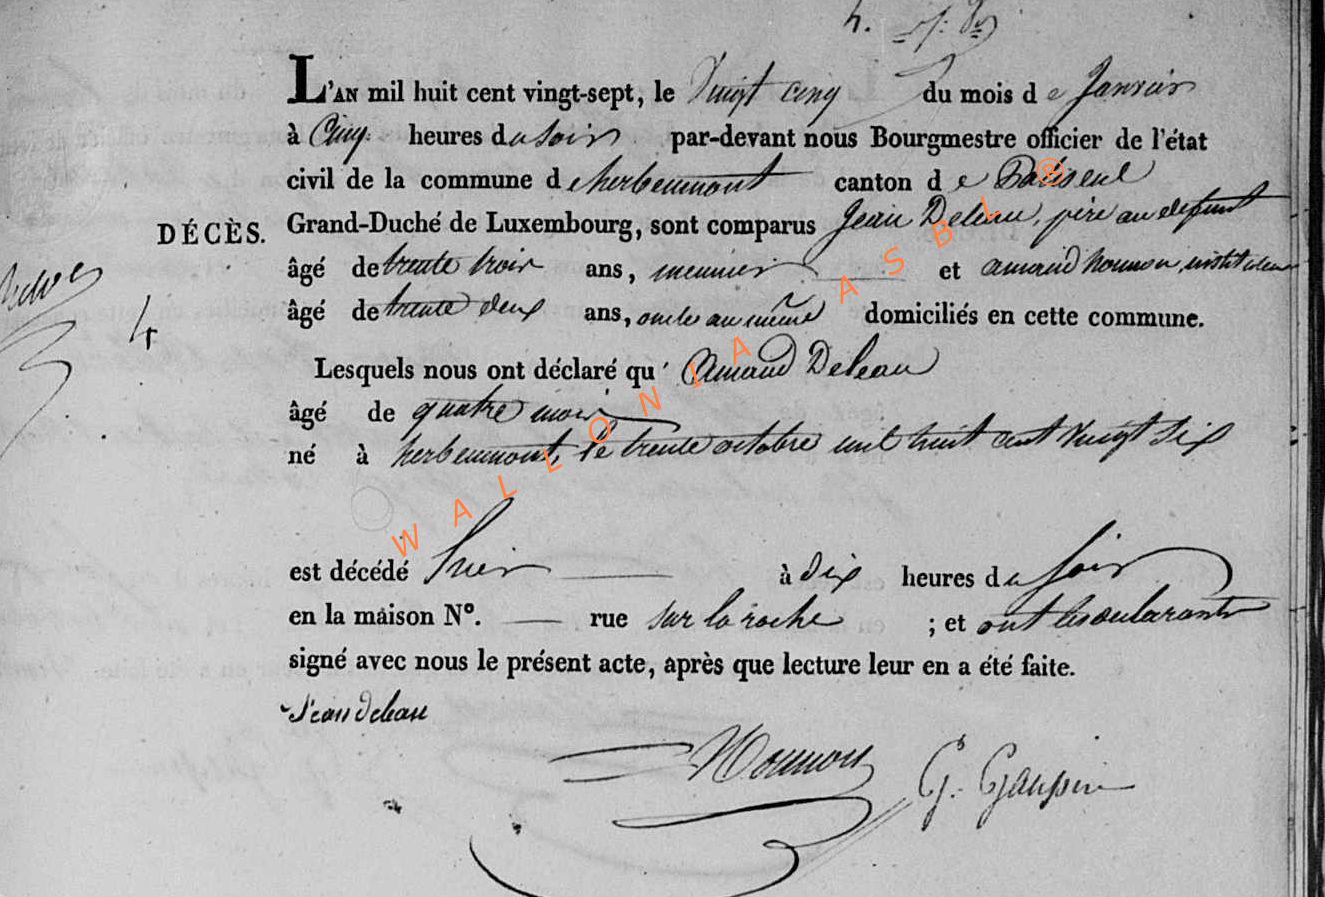 L'AN mil huit cent vingt-sept, le Vingt cinq du mois de Janvier
à Cinq heures du soir par-devant nous Bourgmestre officier de l'état
civil de la commune d'herbeumont canton de Paliseul
DÉCÈS. Grand-Duché de Luxembourg, sont comparus Jean Deleau, père au defunt
âgé de trente trois ans, meunier et amand hounon, instituteur
4 âgé de trente deux ans, oncle au même domiciliés en cette commune.
Lesquels nous ont déclaré qu' Amand Deleau
âgé de quatre mois
né à herbeumont, le trente octobre mil huit cent vingt six
est décédé hier à dix heures du soir
en la maison N°. — rue sur la roche ; et ont les déclarants
signé avec nous le présent acte, après que lecture leur en a été faite.
Jean Deleau
Hounon G. Gauspin
WALLONIA ASBL ®